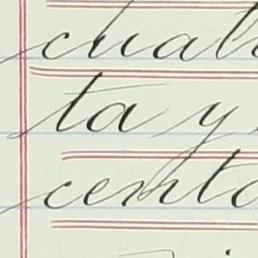 cuat
ta y
cento